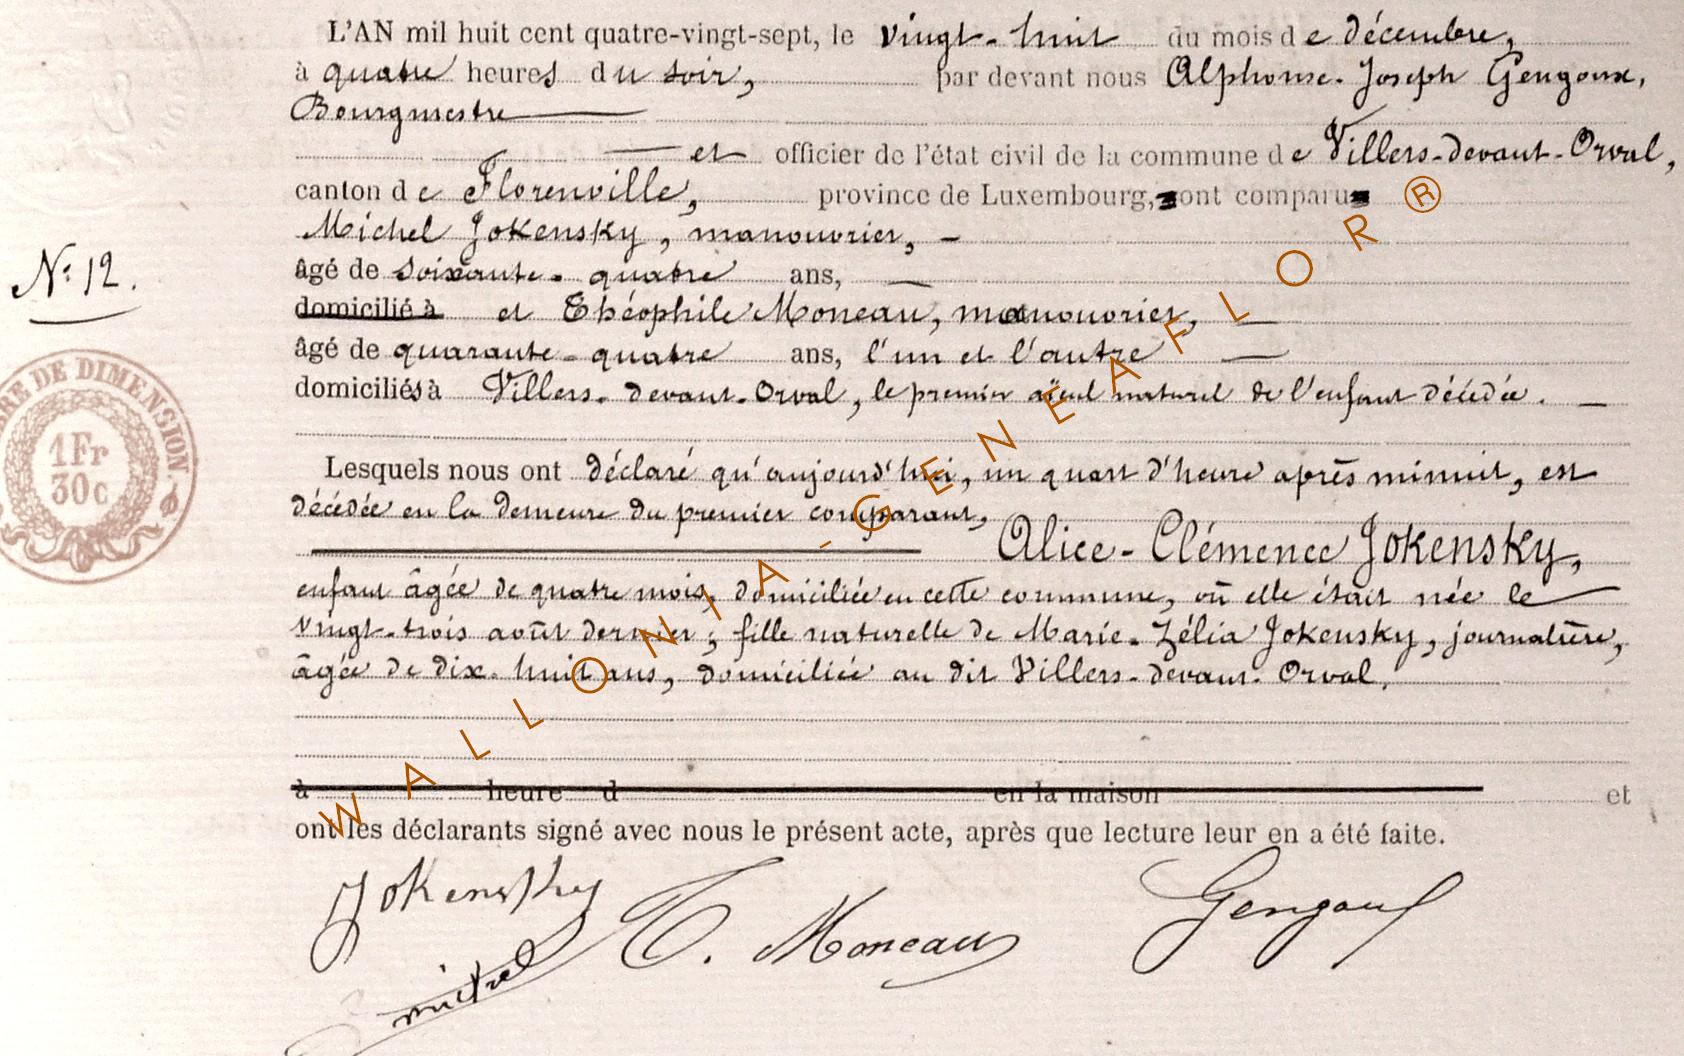 L'AN mil huit cent quatre-vingt-sept, le vingt-huit du mois de décembre,
à quatre heures du soir, par devant nous Alphonse-Joseph Gengoux,
Bourgmestre
et officier de l'état civil de la commune de Villers-devant-Orval,
canton de Florenville, province de Luxembourg, ont comparu
Michel Jokensky, manouvrier, –
N° 12.
âgé de soixante-quatre ans, —
domicilié à et Théophile Moneau, manouvrier, —
âgé de quarante-quatre ans, l'un et l'autre —
domiciliés à Villers-devant-Orval, le premier aïeul naturel de l'enfant décédée. —
TIMBRE DE DIMENSION
1Fr
30c
Lesquels nous ont déclaré qu'aujourd'hui, un quart d'heure après minuit, est
décédée en la demeure du premier comparant,
Alice-Clémence Jokensky,
enfant âgée de quatre mois, domiciliée en cette commune, où elle était née le
vingt-trois août dernier; fille naturelle de Marie-Zélia Jokensky, journalière,
âgée de dix-huit ans, domiciliée au dit Villers-devant-Orval.
à heure d en la maison et
ont les déclarants signé avec nous le présent acte, après que lecture leur en a été faite.
Jokensky T. Moneau Gengoux
michel
WALLONIA-GENEAFLOR®